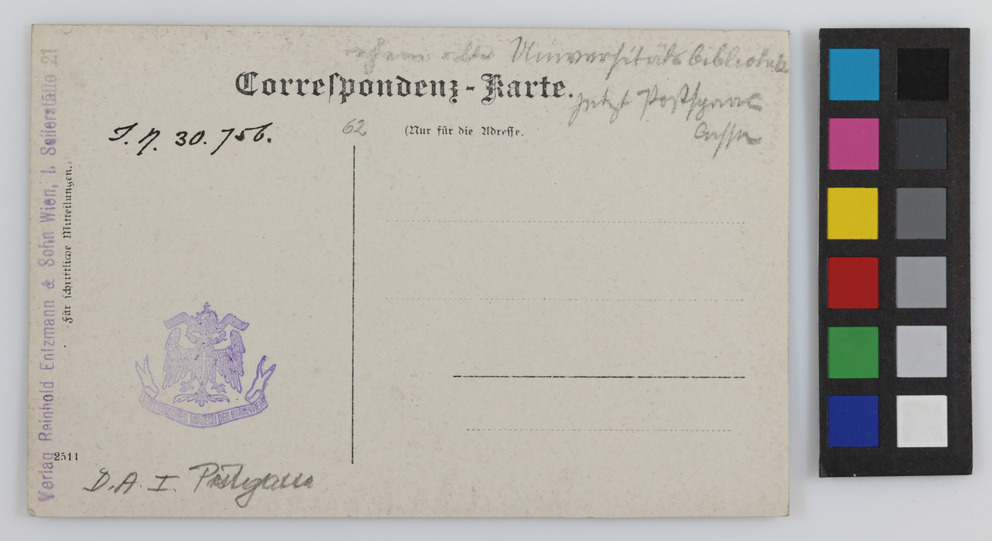 Universitätsbibliothek
Correspondenz-Karte.
jetzt Postsparc
Cassa
J. N. 30.756.
62
(Nur für die Adresse.
Für schriftliche Mitteilungen.
Verlag Reinhold Entzmann & Sohn Wien, I. Seilerstätte 21
2511
D. A. I. Postgasse